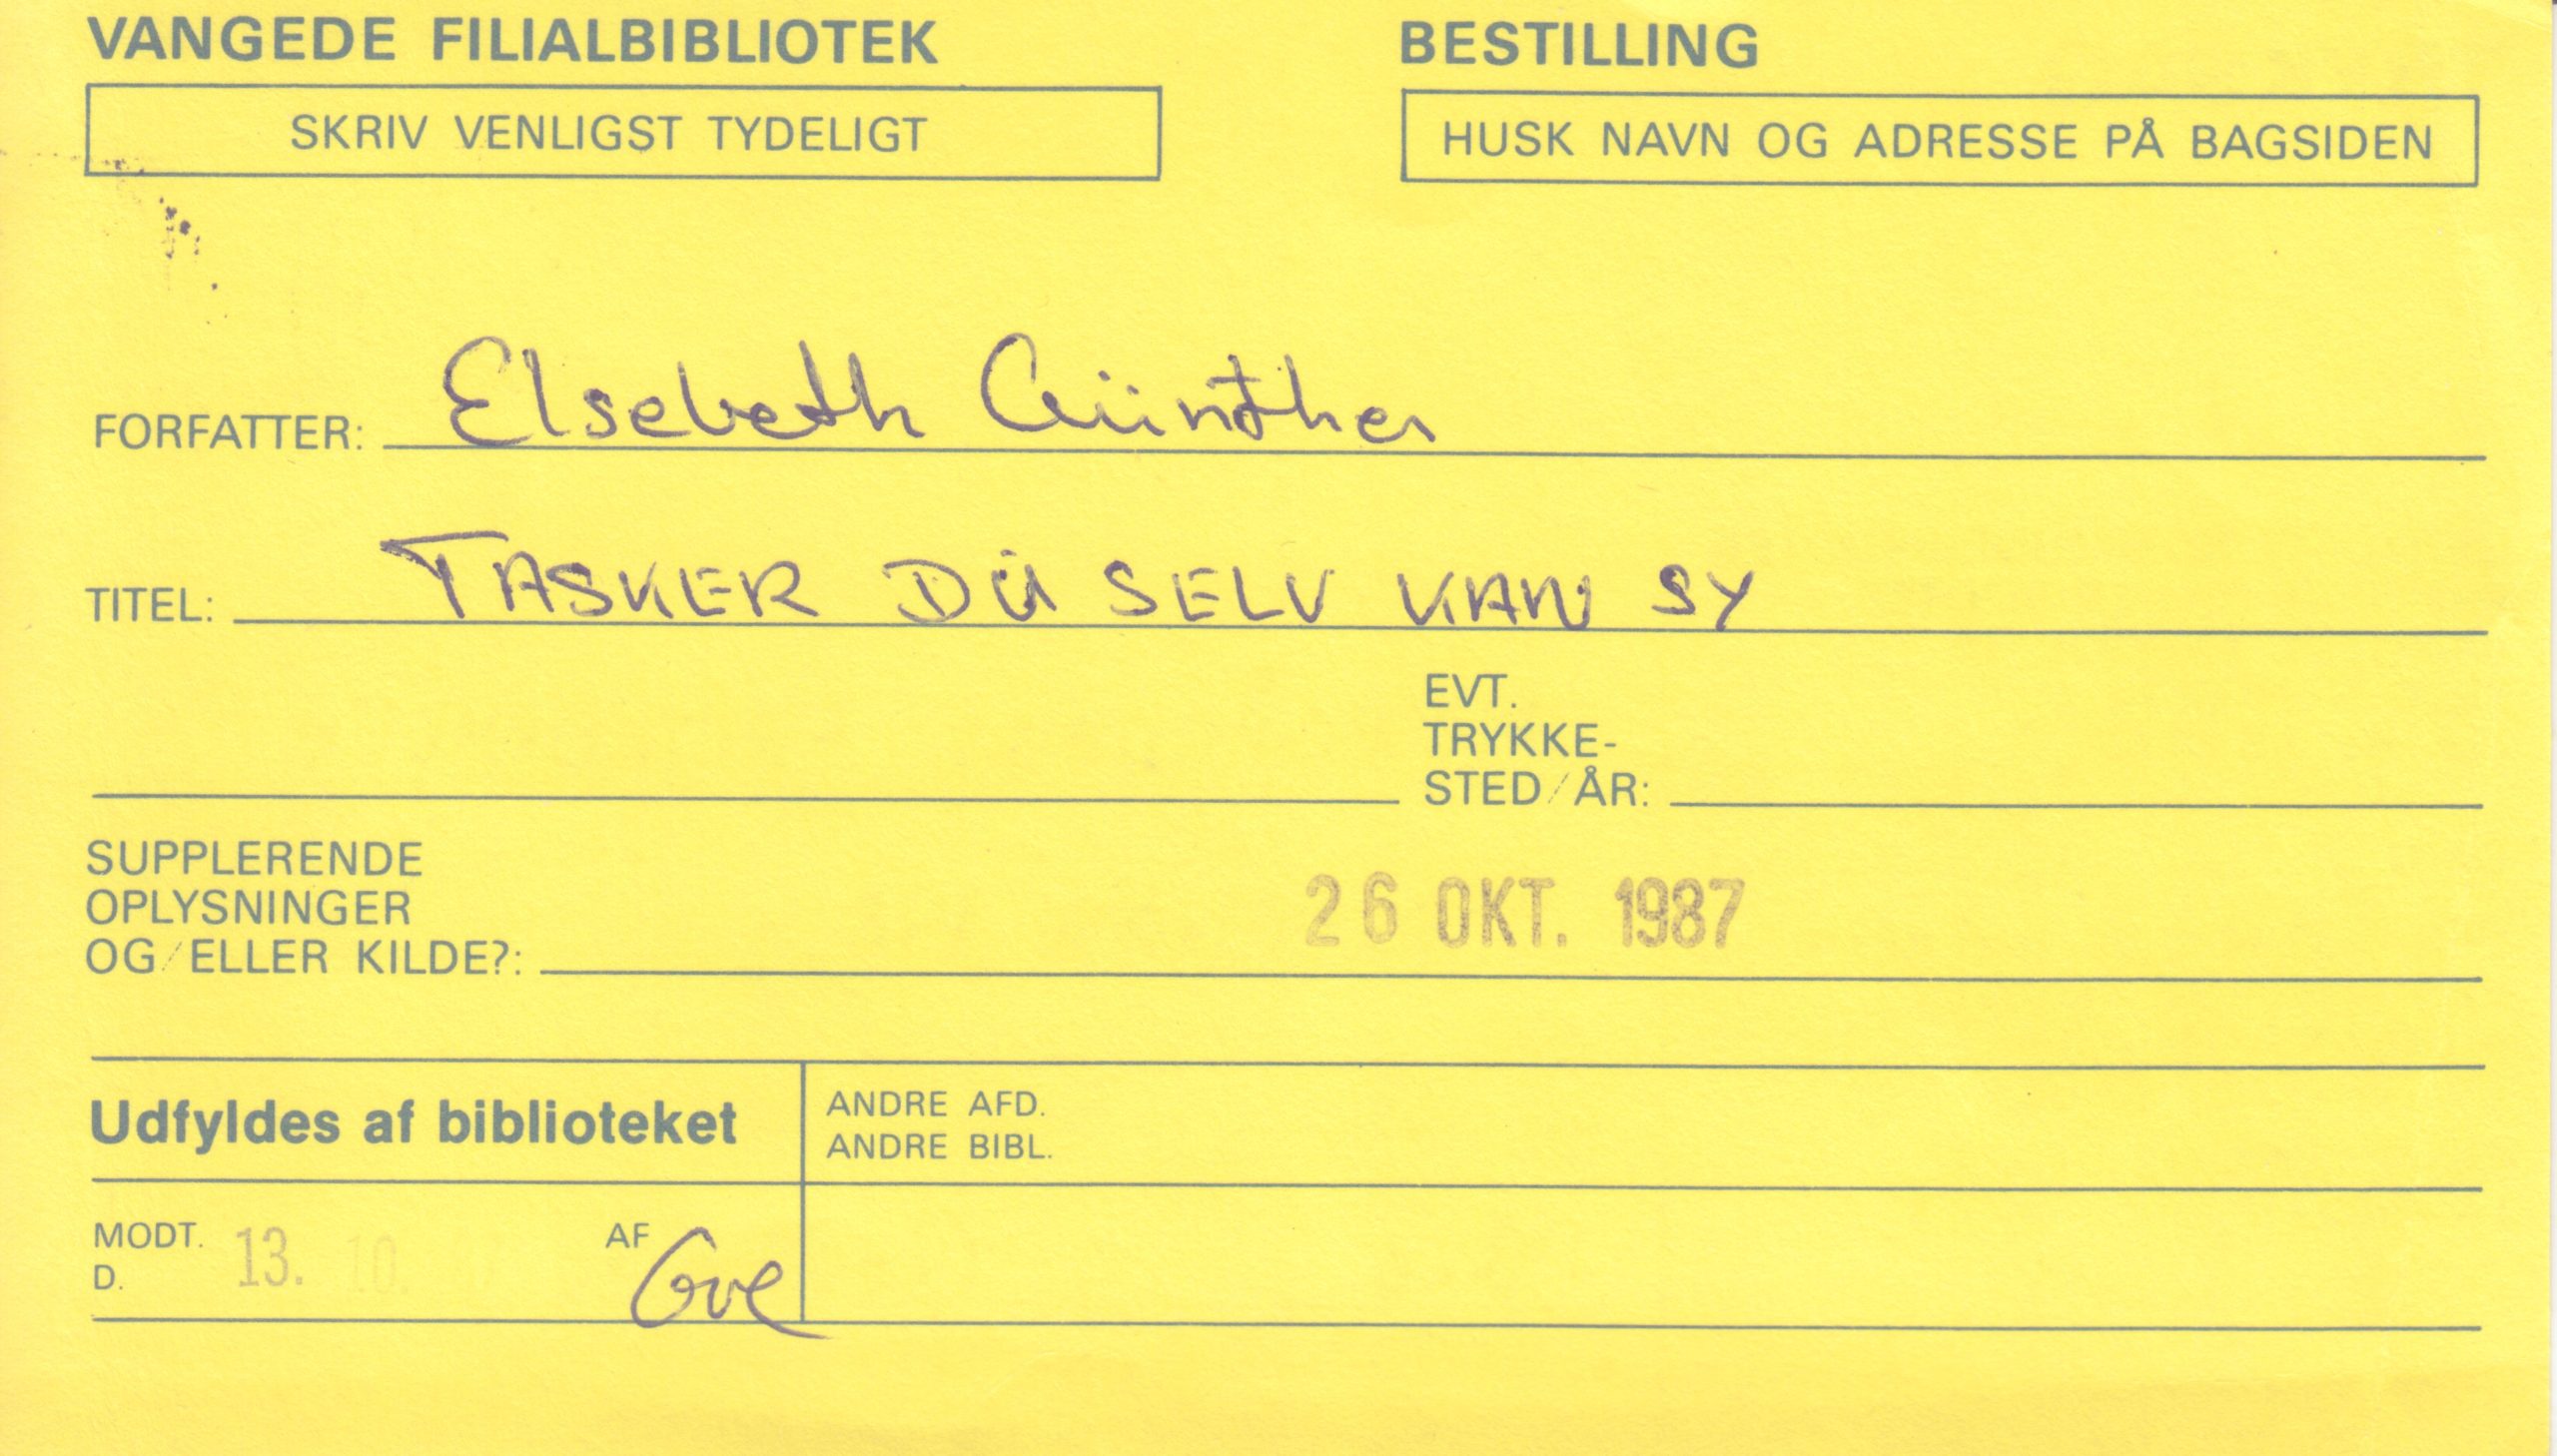 VANGEDE FILIALBIBLIOTEK
BESTILLING
SKRIV VENLIGST TYDELIGT
HUSK NAVN OG ADRESSE PÅ BAGSIDEN
FORFATTER: Elsebeth Günther
TITEL: TASKER DU SELV KAN SY
EVT.
TRYKKE-
STED/ÅR:
SUPPLERENDE
OPLYSNINGER
OG/ELLER KILDE?:
26 OKT. 1987
Udfyldes af biblioteket
ANDRE AFD.
ANDRE BIBL.
MODT.
D. 13. 10.
AF